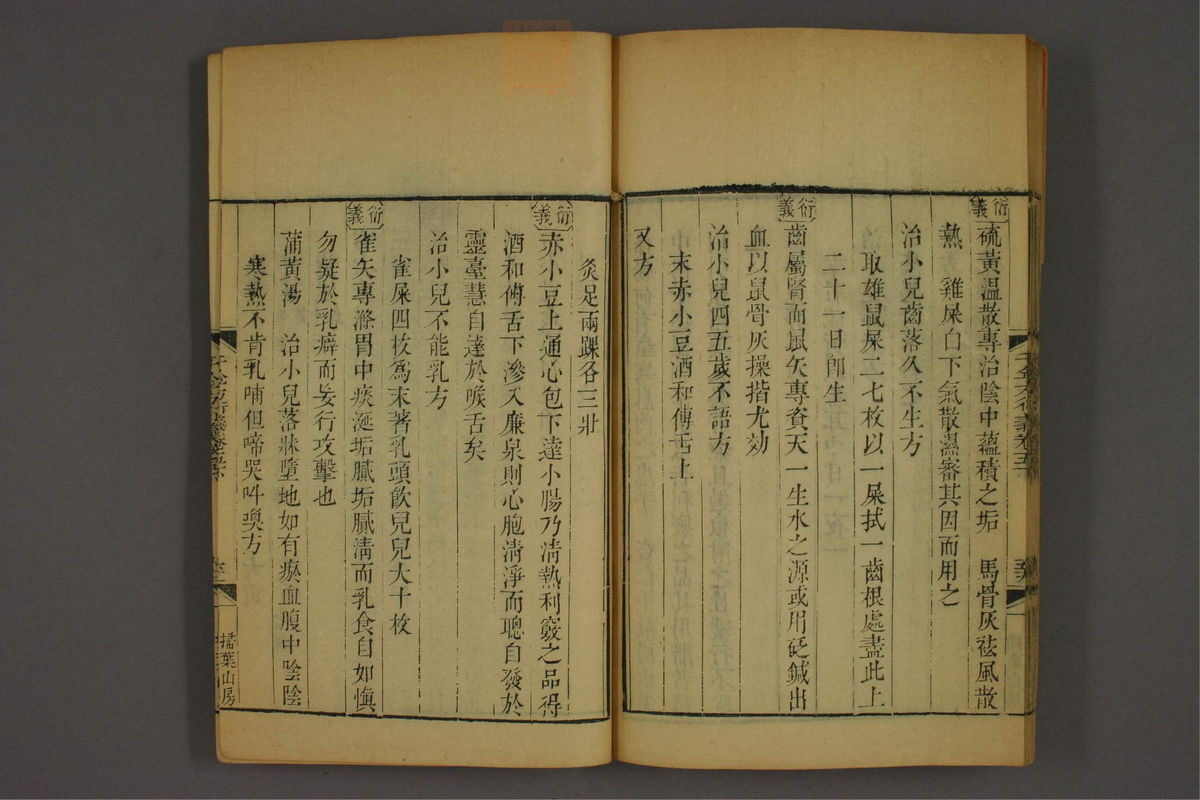 衍義
硫黃温散專治陰中蘊積之垢　馬骨灰祛風散
熱　雞屎白下氣散濕審其因而用之
治小兒齒落久不生方
取雄鼠屎二七枚以一屎拭一齒根處盡此上
二十一日卽生
衍義
齒屬腎而鼠矢專資天一生水之源或用砭鍼出
血以鼠骨灰揩尤効
治小兒四五歲不語方
末赤小豆酒和傅舌上
又方
灸足兩踝各三壯
衍義
赤小豆上通心包下達小腸乃清熱利竅之品得
酒和傅舌下滲入廉泉則心胞清淨而聰自發於
靈臺慧自達於喉舌矣
治小兒不能乳方
雀屎四枚爲末著乳頭飮兒兒大十枚
衍義
雀矢專滌胃中痰涎垢膩垢膩淸而乳食自如愼
勿疑於乳癖而妄行攻擊也
蒲黃湯　治小兒落牀墮地如有瘀血腹中陰陰
寒熱不肯乳哺但啼哭叫喚方
掃葉山房